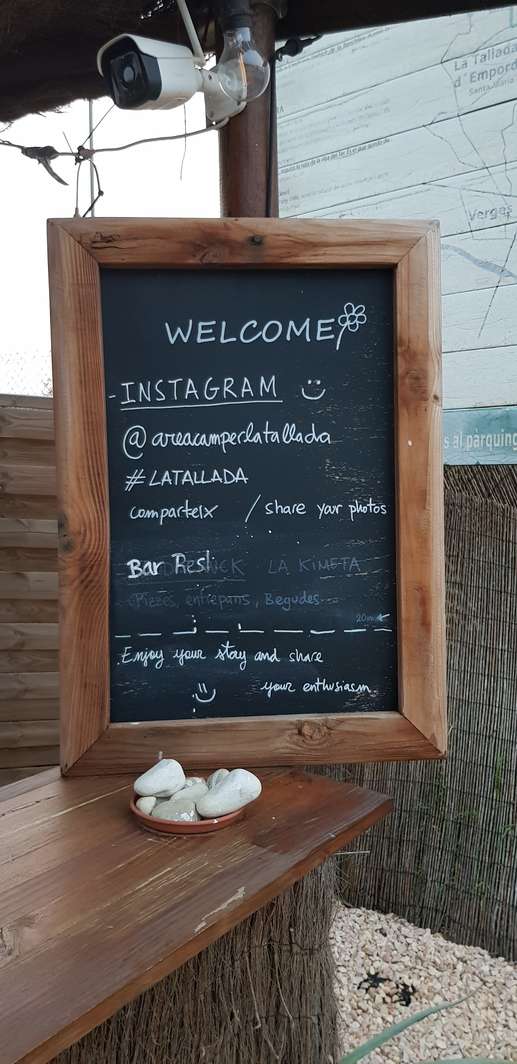 La Tallada
d'Empord
Santa Maria
Verges
WELCOME
INSTAGRAM
@areacamperlatallada
#LATALLADA
comparteix / share your photos
s al pàrquing
Bar Rest
LA KIMETA
Pizzes, entrepans, Begudes
20m
Enjoy your stay and share
your enthusiasm